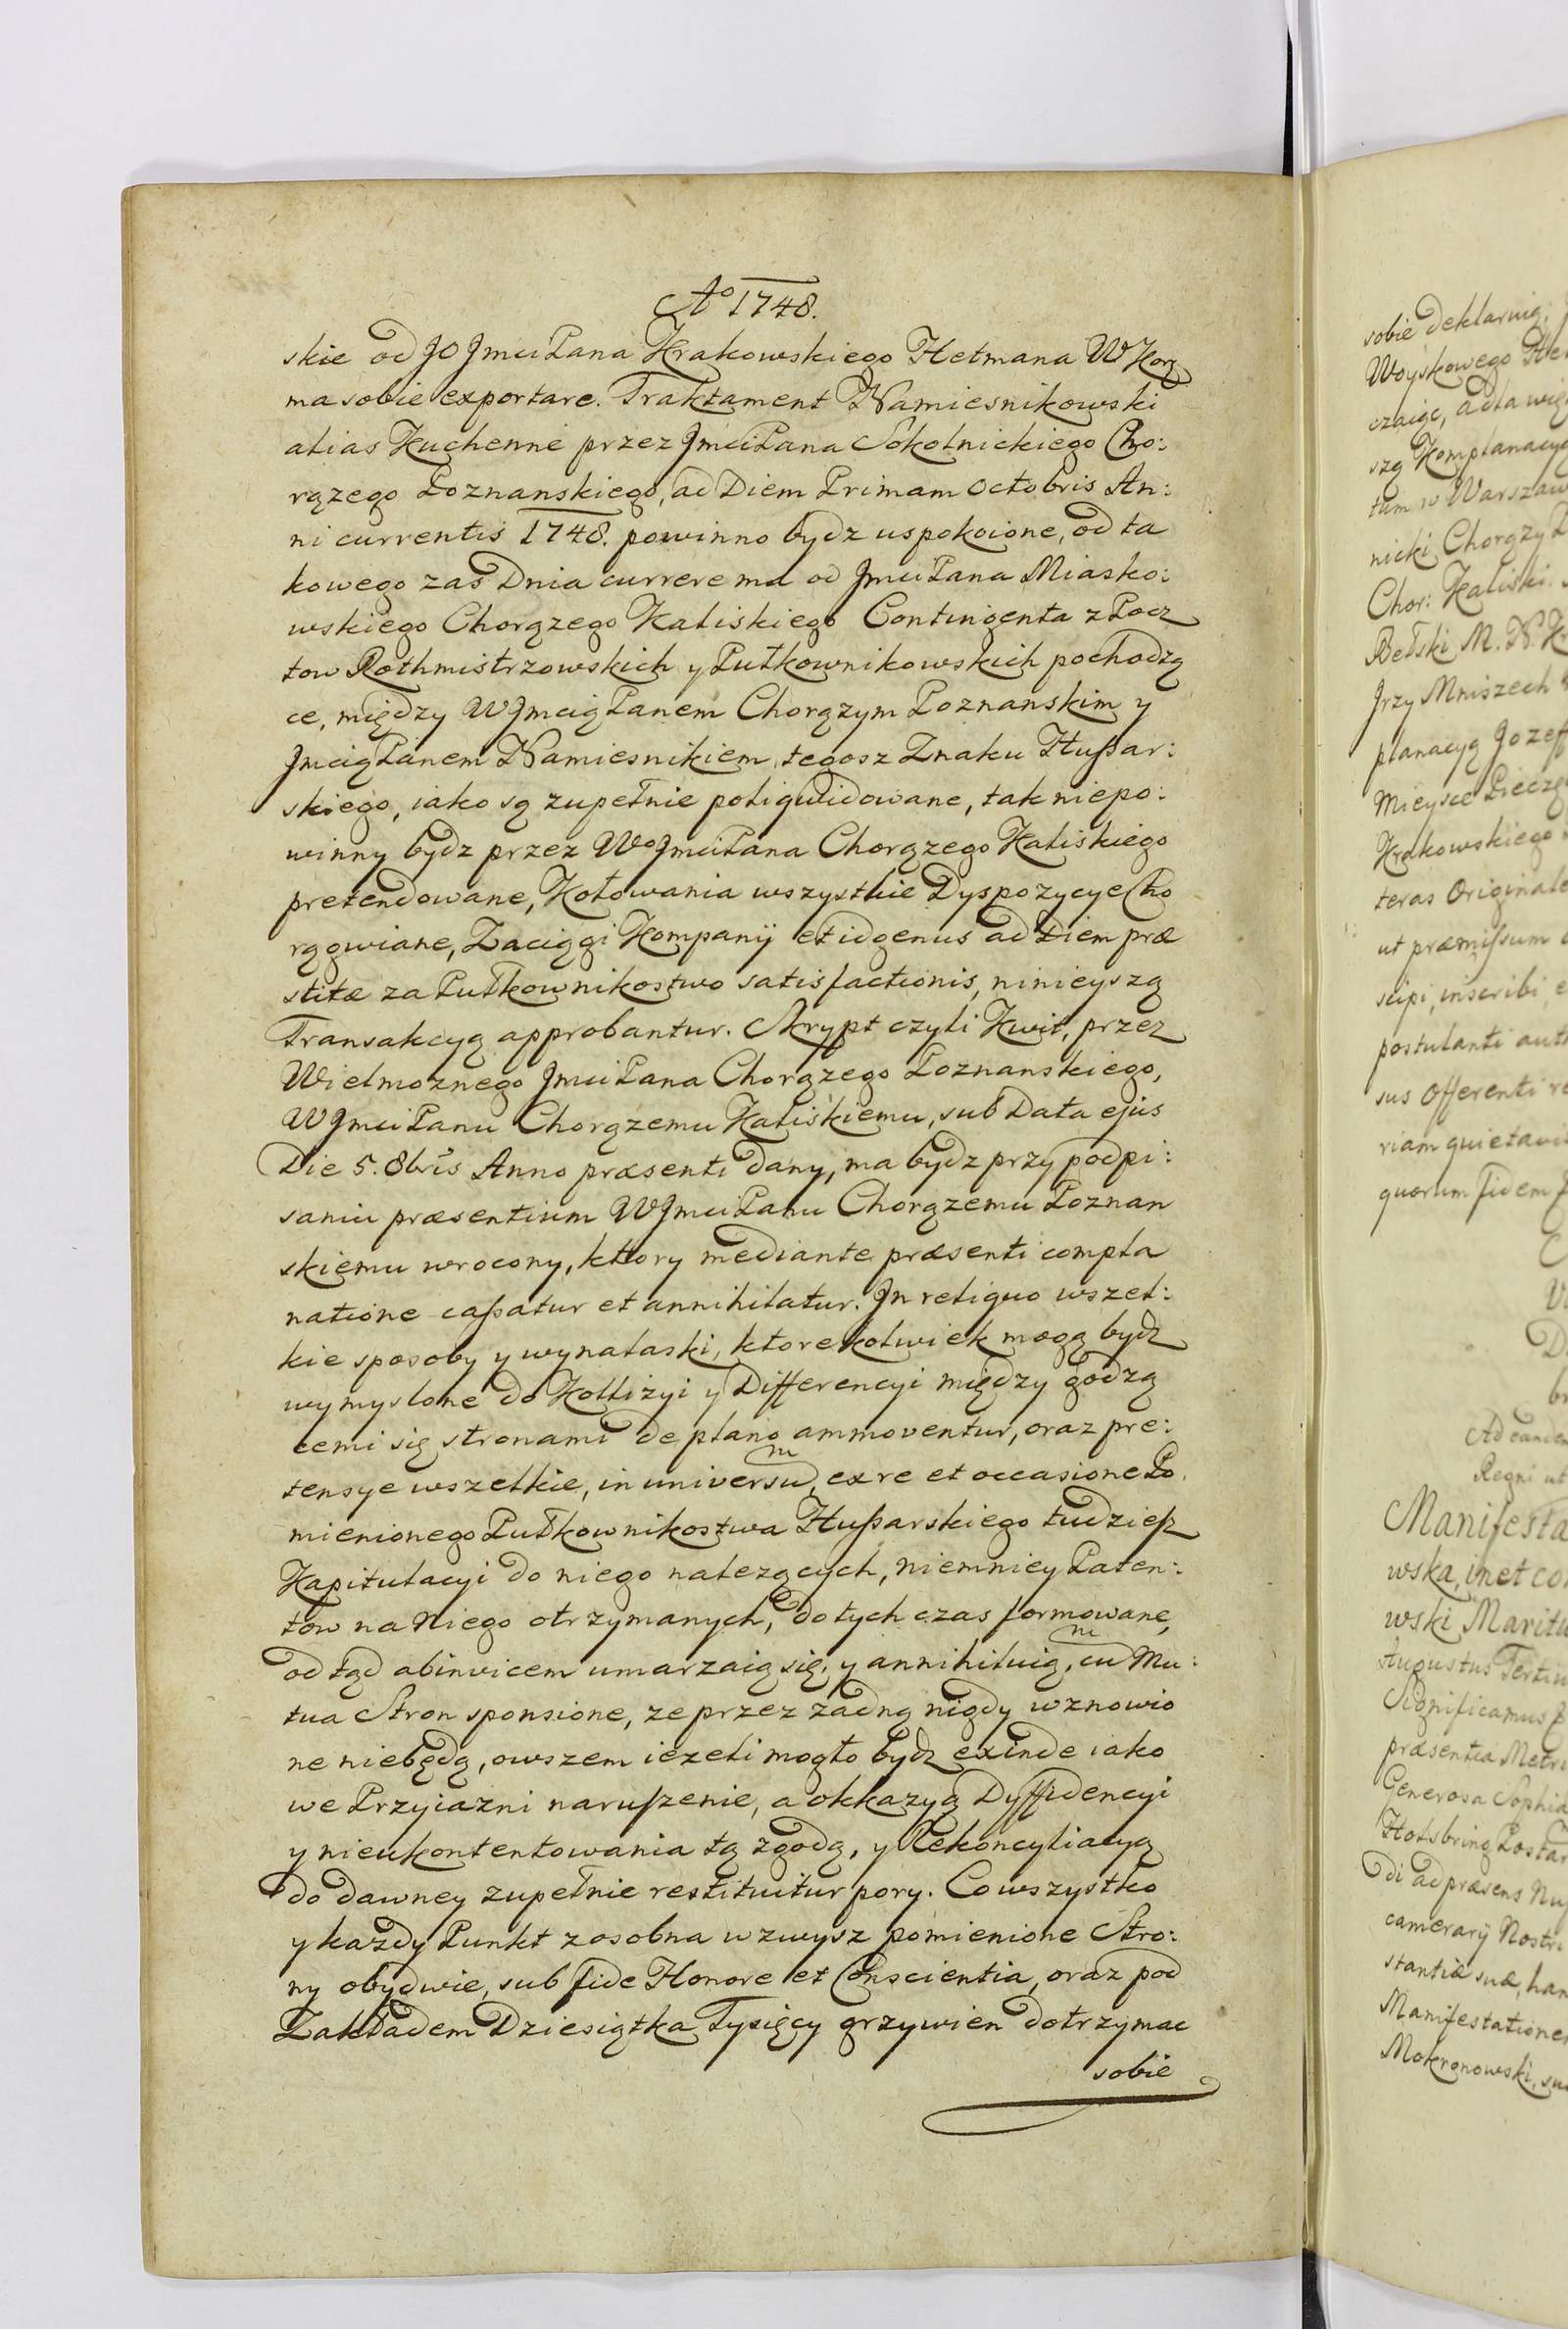 Aº 1748.
skie od JO Jmci Pana Krakowskiego Hetmana W Kor:
ma sobie exportare. Traktament Namiesnikowski
alias Kuchenne przez Jmci Pana Sokolnickiego Cho:
rązego Poznanskiego, ad Diem Primam Octobris An:
ni currentis 1748. powinno bydz uspokoione, od ta
kowego zas Dnia currere ma od Jmci Pana Miasko:
wskiego Chorązego Kaliskiego Contingenta z Pocz
tow Rothmistrzowskich y Pułkownikowskich pochodzą
ce, między W Jmcią Panem Chorązym Poznanskim y
Jmcią Panem Namiesnikiem, tegosz Znaku Hußar:
skiego, iako są zupełnie poliquidowane, tak niepo:
winny bydz przez Wº Jmci Pana Chorązego Kaliskiego
pretendowane, Kołowania wszystkie Dyspozycye Cho
rągwiane, Zaciągi Kompanij et idgenus ad Diem præ
stitæ za Pułkownikostwo satisfactionis, ninieyszą
Transakcyą approbantur. Skrypt czyli Kwit, przez
Wielmoznego Jmci Pana Chorązego Poznanskiego,
W Jmci Panu Chorązemu Kaliskiemu, sub Data ejus
Die 5. 8bris Anno præsenti dany, ma bydz przy podpi:
saniu præsentium W Jmci Panu Chorązemu Poznan
skiemu wrocony, ktory mediante præsenti compla
natione caßatur et annihilatur. Jn reliquo wszel:
kie sposoby y wynalaski, ktorekolwiek mogą bydz
wymyslone do Kollizyi y Differencyi między godzą
cemi się stronami de plano ammoventur, oraz pre:
tensye wszelkie, in universum, ex re et occasione Po
mienionego Pułkownikostwa Hußarskiego tudzieß
Kapitulacyi do niego nalezących, niemniey Paten:
tow na Niego otrzymanych, do tych czas formowane,
od tąd abinvicem umarzaią się, y annihiluią, cum Mu:
tua Stron sponsione, ze przez zadną nigdy wznowio
ne niebędą, owszem iezeli mogło bydz exinde iako
we Przyiazni narußenie, a okkazyą Dyffidencyi
y nieukontentowania tą zgodą, y Rekoncyliacyą
do dawney zupełnie restituitur pory. Co wszystko
y kazdy Punkt zosobna wzwysz pomienione Stro:
ny obydwie, sub fide Honore et Conscientia, oraz pod
Zakładem Dziesiątka Tysięcy grzywien dotrzymac
sobie
sobie deklaruią,
Woyskowego
czaiąc, a dla
szą Komplanacyą
tum w Warszaw
nicki Chorązy
Chor: Kaliski.
Bełski M. N. K
Jrzy Mniszech
planacyą Jozeff
Mieysce Pieczę
Krakowskiego
teras Originale
ut præmißum
scipi, inscribi,
postulanti
sus Offerenti
riam quietavit
quorum fidem
Ad eandem
Regni
Manifesta
wska, inet
wski Mariti
Augustus Tertiu
Significamus
præsentia Metri
Generosa Sophia
di ad præsens
camerarÿ Nostri
stantiæ suæ,
Manifestatione
Mokronowski,